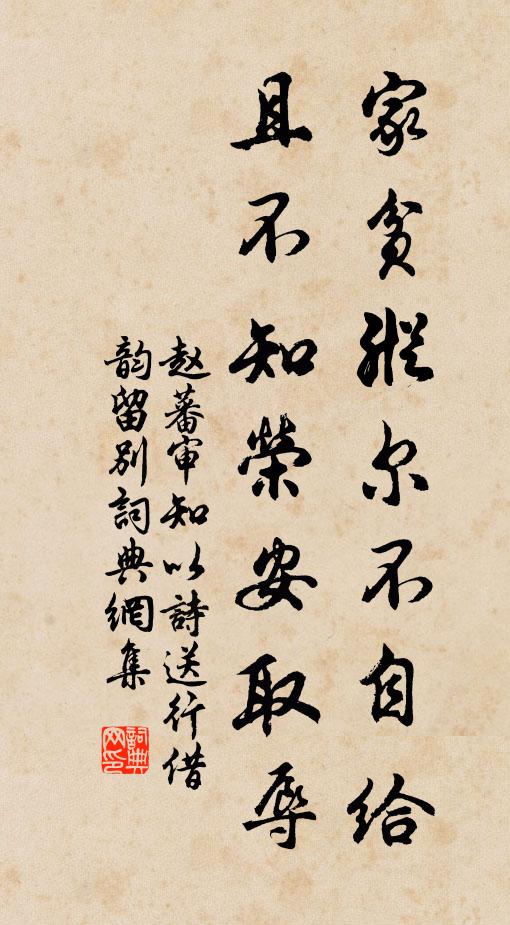 家贫縱尔不自给
且不知榮安取辱
赵蕃审知以詩送行借
韵留别詞典網集
詞典网印